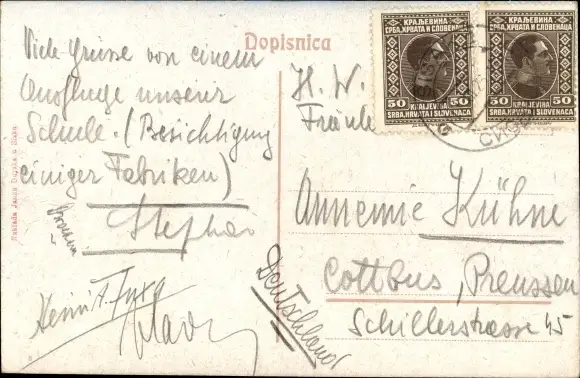 Dopisnica
Viele Grüsse von einem
Ausfluge unserer
Schule. (Besichtigung
einiger Fabriken)
Stephan
H. W.
Fräule
Annemie Kühne
Cottbus, Preussen
Schillerstrasse 45
Deutschland
КРАЉЕВИНА
СРБА, ХРВАТА И СЛОВЕНАЦА
50 50
KRALJEVINA
SRBA, HRVATA I SLOVENACA
КРАЉЕВИНА
СРБА, ХРВАТА И СЛОВЕНАЦА
50 50
KRALJEVINA
SRBA, HRVATA I SLOVENACA